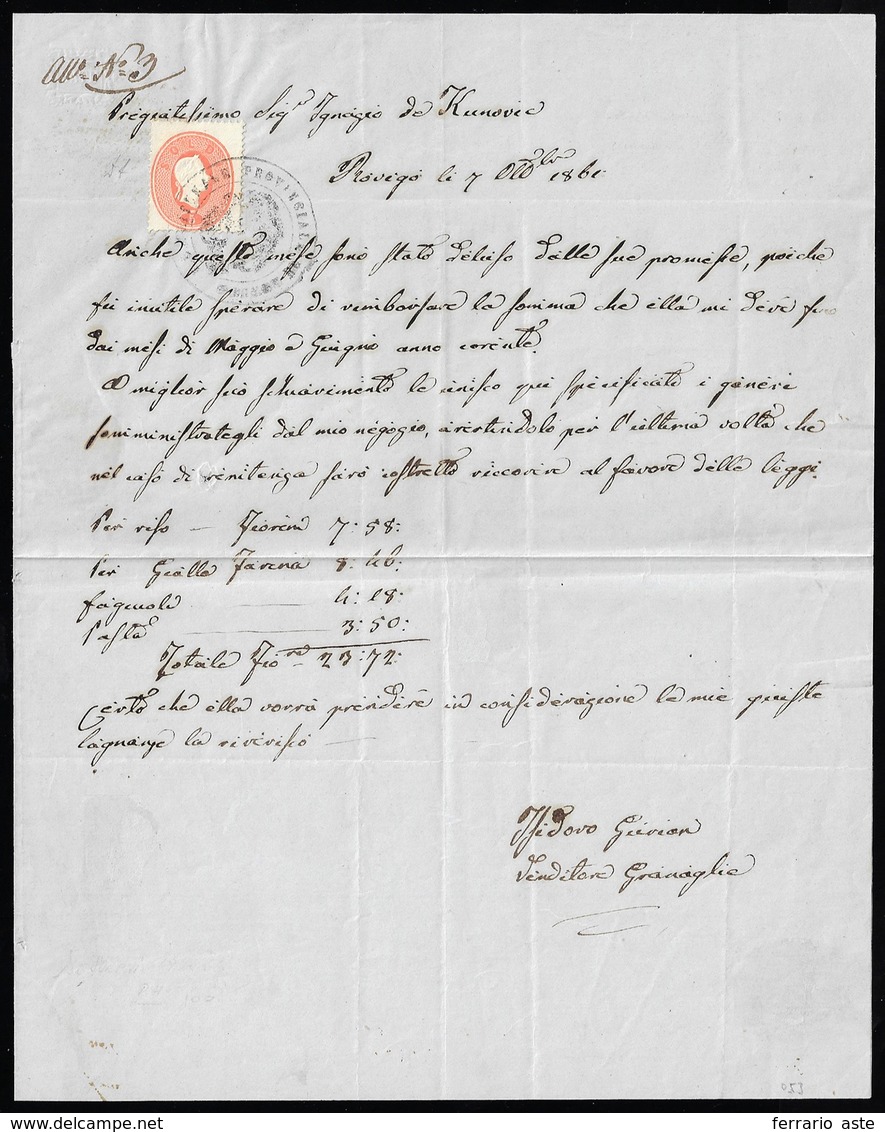 All.º N.º 3
Pregiatissimo Sig.r Ignazio de Kunovic
Rovigo li 7 Ott.bre 1861
SOLDI
TRIBUNALE PROVINCIALE
Anche questo mese sono stato deluso dalle sue promesse, poichè
fu inutile sperare di rimborsare la somma che ella mi deve fino
dai mesi di Maggio e Giugno anno corente.
A miglior suo schiarimento le unisco qui specificato i generi
somministrategli dal mio negozio, avertindolo per l'ultima volta che
nel caso di renitenza sarò costretto riccorere al favore delle leggi.
Per riso — Fiorini 7:58:
Per Gialla Farina 8:46:
fagiuoli — 4:18:
Pasta — 3:50:
Totale Fio.ni 23:72:
Certo che ella vorrà prendere in considerazione le mie giuste
lagnanze la riverisco —
Isidoro Gievion
Venditore Granaglie
023
ferrario aste